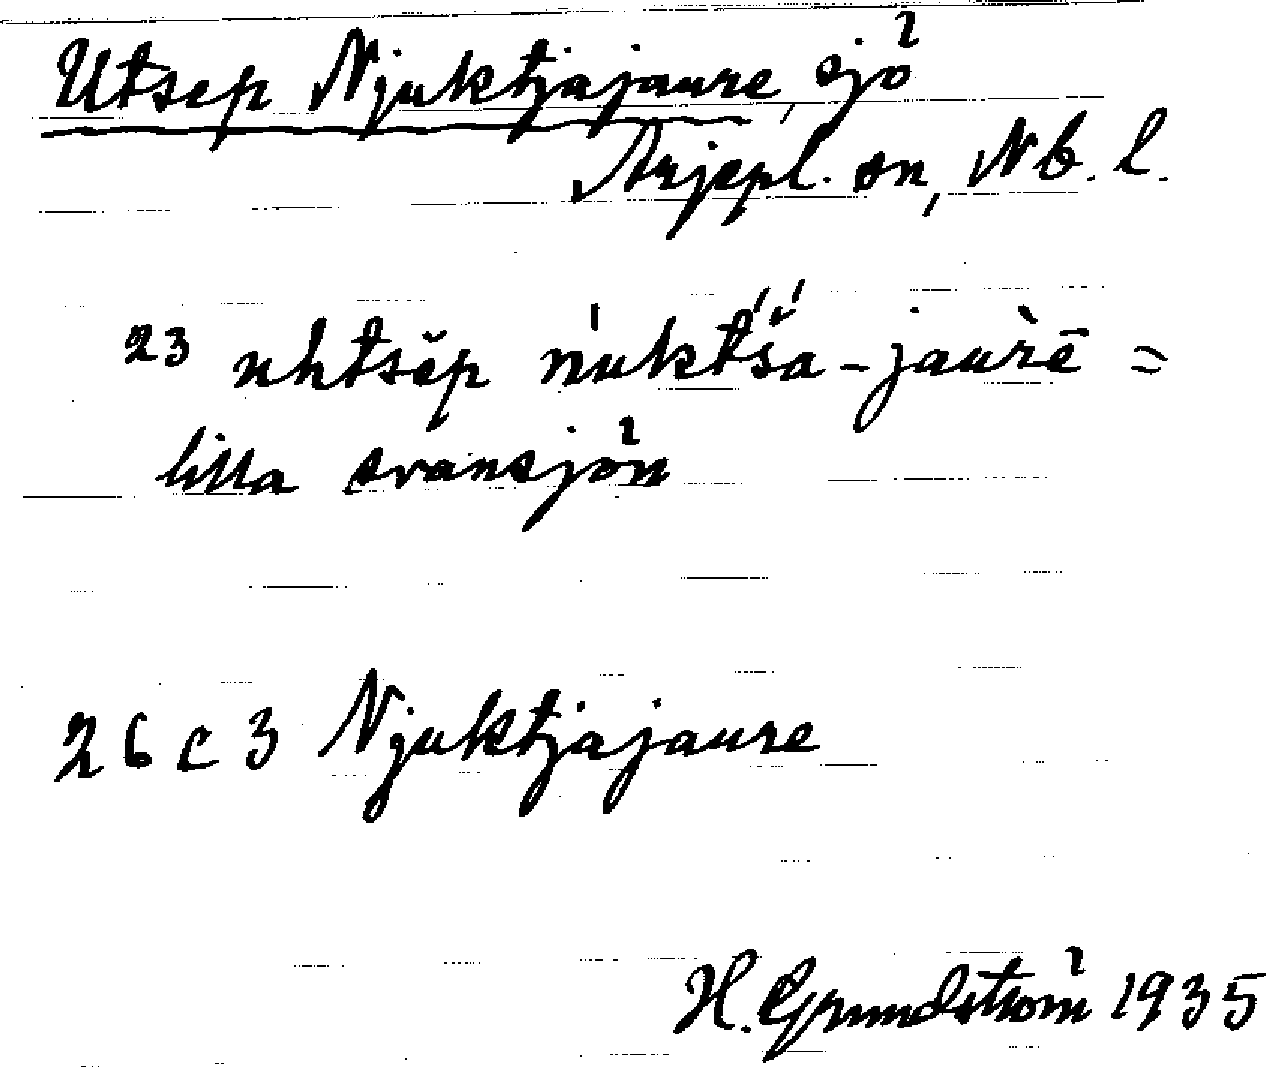 Utsep Njuktjajaure, sjö
Arjepl. sn, Nb. l.
23 uhtsĕp ńukt́śa-jaurē =
lilla svansjön
26 c 3 Njuktjajaure
H. Grundström 1935